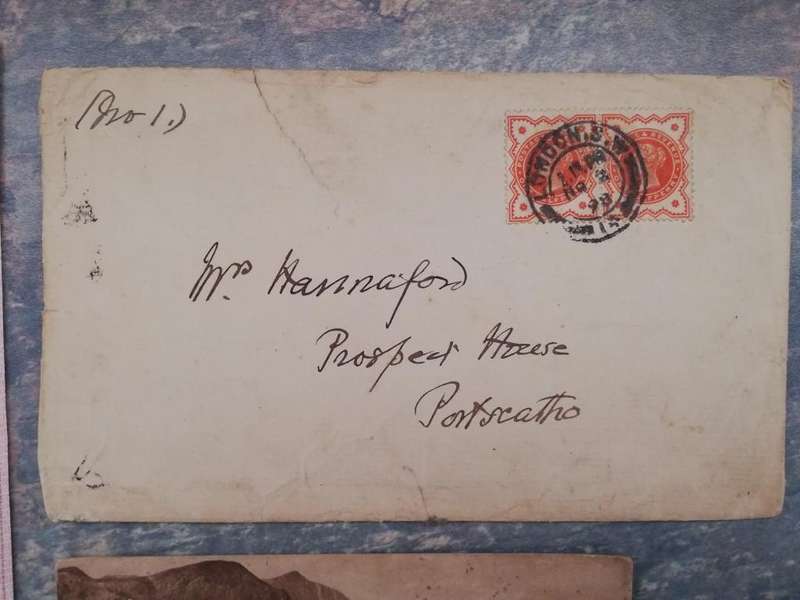 (No 1.)
LONDON. S.W.
98
Mrs. Hannaford
Prospect House
Portscatho